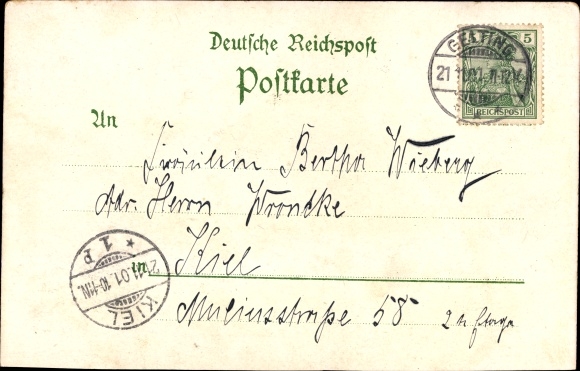 Deutsche Reichspost
Postkarte
5
REICHSPOST
GELTING
An
Fräulein Bertha Wieberg
Adr. Herrn Wroncke
in Kiel
Muliusstraße 58 2te Etage
KIEL
* 1 P
11.01. 10-11N.